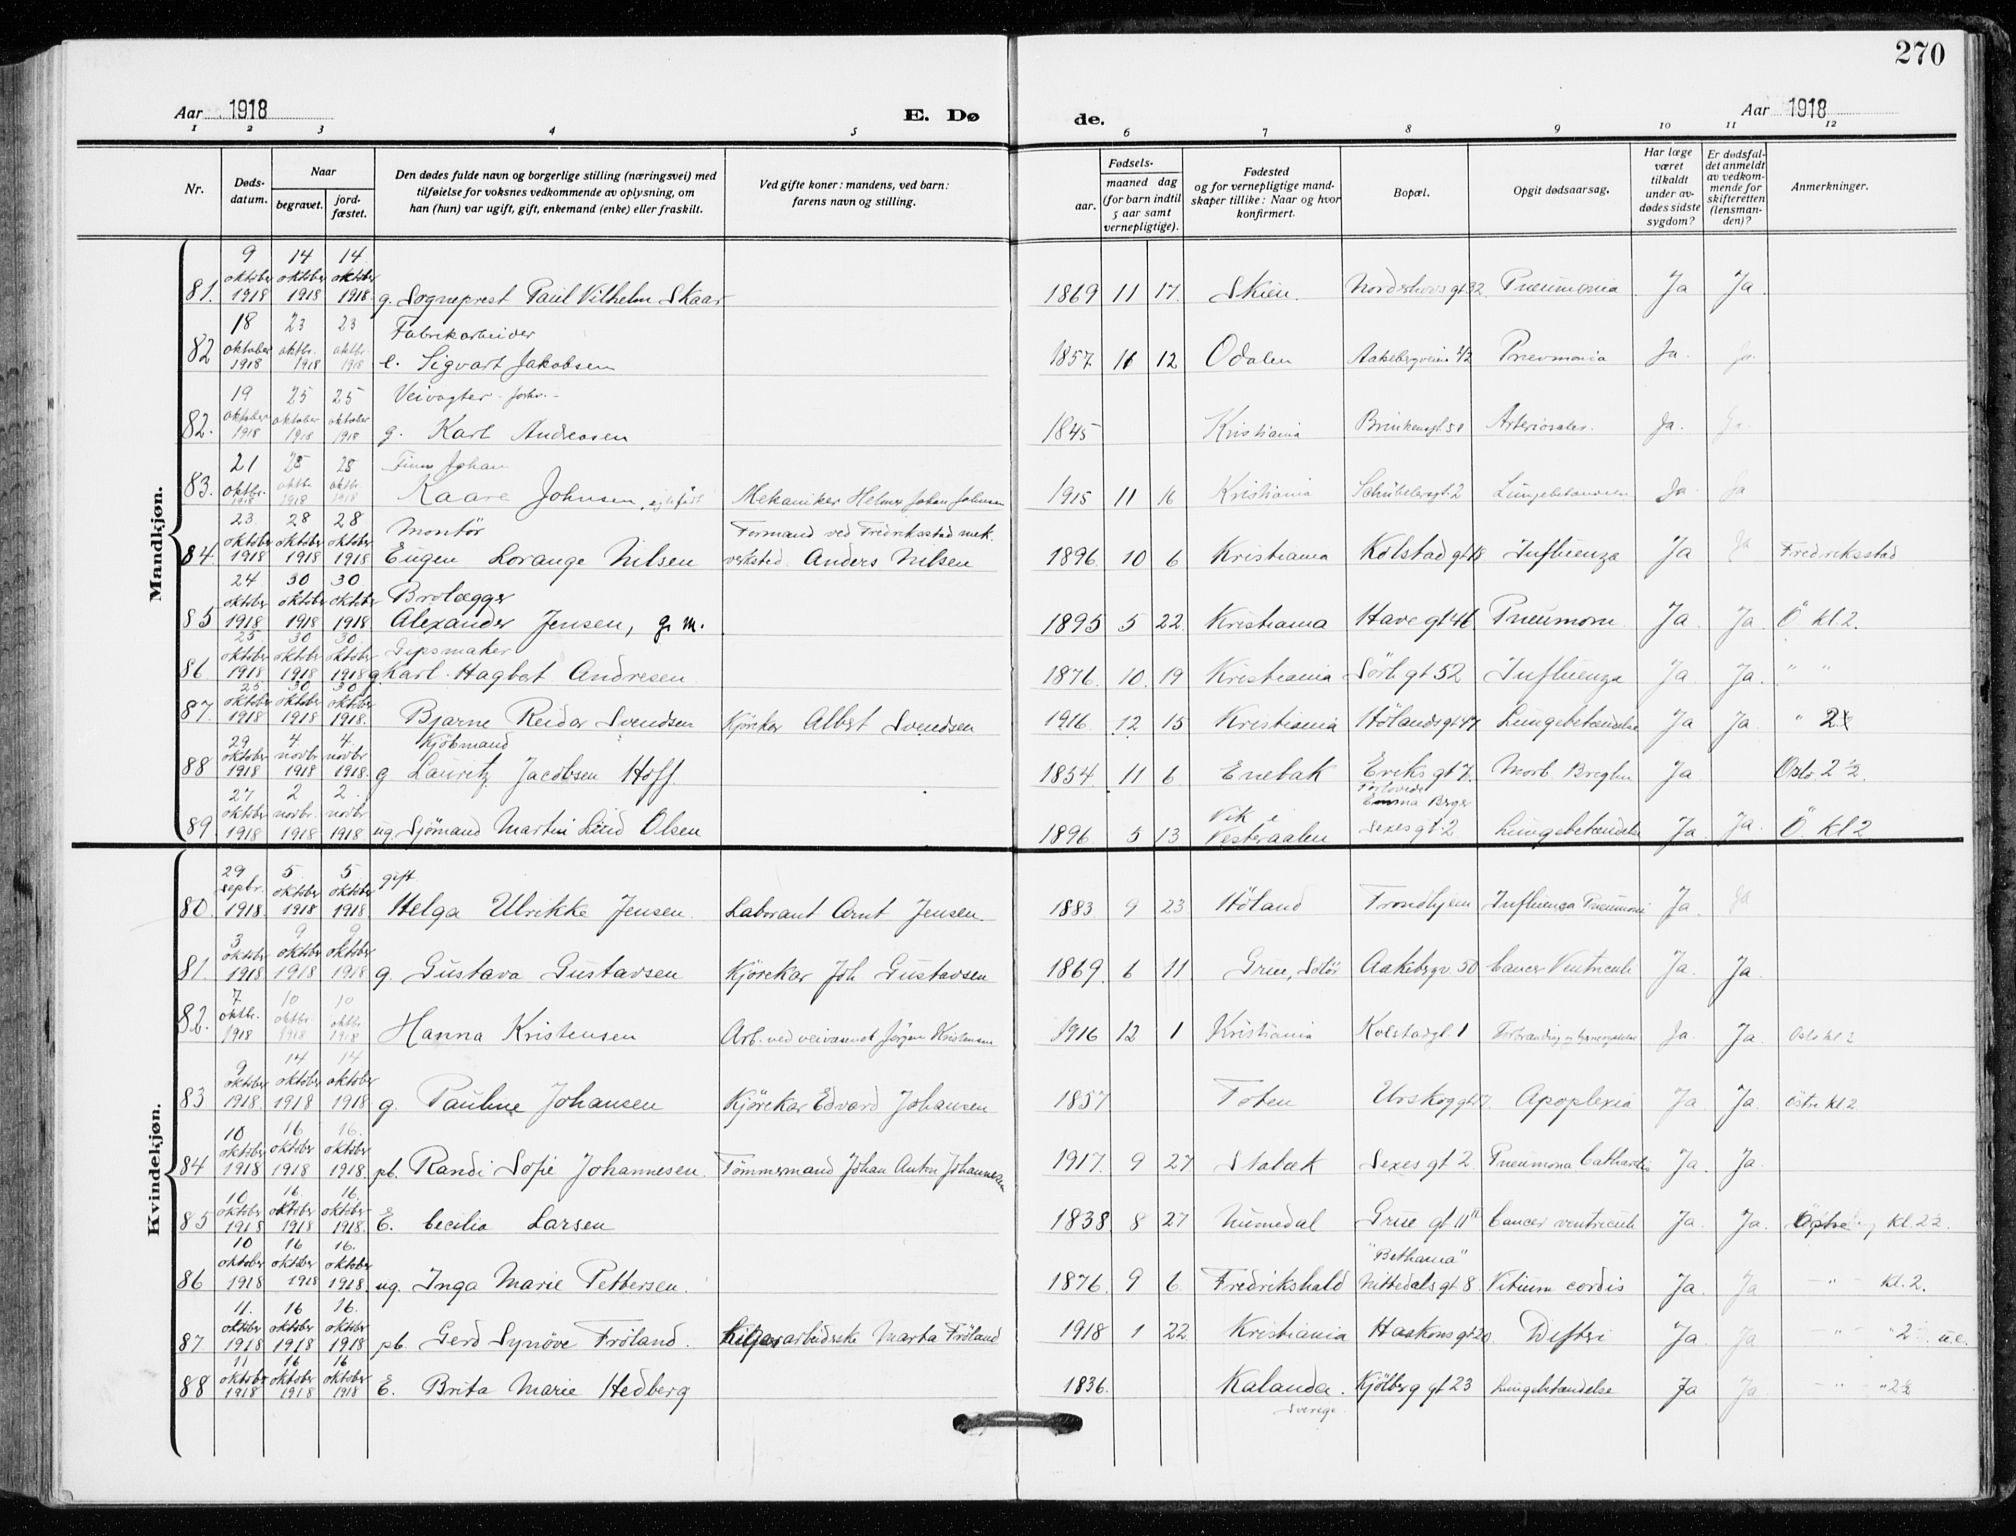 270
Aar 1918 E. Dø de. Aar 1918
1 2 3 4 5 6 7 8 9 10 11 12
Nr. Døds-datum. Naar begravet. jord-fæstet. Den dødes fulde navn og borgerlige stilling (næringsvei) med tilføielse for voksnes vedkommende av oplysning, om han (hun) var ugift, gift, enkemand (enke) eller fraskilt. Ved gifte koner: mandens, ved barn: farens navn og stilling. Fødsels- aar. maaned dag (for barn indtil 5 aar samt vernepligtige). Fødested og for vernepligtige mand-skaper tillike: Naar og hvor konfirmert. Bopæl. Opgit dødsaarsag. Har læge været tilkaldt under av-dødes sidste sygdom? Er dødsfal-det anmeldt av vedkom-mende for skifteretten (lensman-den)? Anmerkninger.
Mandkjøn.
81. 9 oktober 1918 14 oktober 1918 14 oktober 1918 g. Sogneprest Paul Vilhelm Skaar 1869 11 17. Skien. Nordrehovsgt 32 Pneumonia Ja Ja
82 18 oktober 1918 23 oktbr. 1918 23 oktbr. 1918 Fabrikarbeider e. Sigvart Jakobsen 1857 12 Odalen Pnevmonia Ja. Ja.
82. 19 oktober 1918 25 oktober 1918 25 oktober 1918 Veivogter g. Karl Andreasen 1845 Kristiania Ja. Ja.
83. 21 oktbr. 1918 28 oktbr. 1918 28 oktbr. 1918 Finn Johan Kaare Johnsen, Mekaniker Helmer Johan Johnsen 1915 11 16 Kristiania Schübelersgt 2 Lungebetændelse Ja Ja
84. 23. oktober 1918 28 oktober 1918 28 oktober 1918 Montör Eugen Lorange Nilsen Formand ved Fredriksstad mek. verksted. Anders Nilsen 1896 10 6 Kristiania Kolstadgt 18 Influenza Ja Ja Fredriksstad
85 24 oktober 1918 30 oktober 1918 30 oktober 1918 Brolægger Alexander Jensen, g. m. 1895 5 22 Kristiania Havegt 46. Pneumoni Ja. Ja. Ö kl 2.
86 25. oktober 1918 30 oktober 1918 30. oktober 1918 Gipsmaker g. Karl Hagbet Andresen 1876. 10. 19 Kristiania Sörligt 52 Influenza Ja Ja. " "
87. 25 oktober 1918 30 oktober 1918 30 oktober 1918. Bjarne Reidar Svendsen Kjörekar Albert Svendsen 1916. 12 15 Kristiania Hølandsgt 47 Lungebetændelse Ja Ja. "
88 29 oktober 1918 4 novbr 1918 4. novbr 1918. Kjöbmand g Lauritz Jacobsen Hoff. 1854. 11 6 Enebak Eriksgt 7. Morb. Ja Oslo 2 ½
89. 27 oktober 1918 2 novbr. 1918 2. novbr 1918 ug. Sjömand Martin Lind Olsen 1896. 5 13 Vik i Vesteraalen Forlovede Emma Berger Sexesgt 2 Lungebetændelse Ja. Ja. Ö kl 2
Kvindekjøn.
80. 29 septbr. 1918. 5. oktober 1918 5. oktober 1918. gift Helga Ulrikke Jensen. Laborant Arnt Jensen. 1883 9 23 Höland Trondhjem Influenza Pneumoni Ja. Ja
81. 3 oktober 1918 9 oktober 1918 9 oktober 1918 g. Gustava Gustavsen Kjörekar Joh Gustavsen 1869. 6 11. Grue, Solör Aakebergv. 50 Cancer Ventriculi Ja. Ja.
82. 7 oktbr. 1918 10 oktbr. 1918 10 oktbr. 1918 Hanna Kristensen Arb. ved veivæsenet Jörgen Kristensen 1916 12 1 Kristiania Kolstadgt. 1 Ja Ja. Oslo kl 2
83 9 oktober 1918. 14 oktober 1918 14 oktober 1918 g. Pauline Johansen Kjörekar Edvard Johansen 1857 Toten Urskoggt 7. Apoplexia Ja Ja. Östre kl 2
84 10 oktober 1918 16 oktober 1918 16. oktober 1918. pb. Randi Sofie Johannesen. Tömmermand Johan Anton Johannesen 1917. 9 27 Stabæk Sexesgt 2 Pneumonia Catharalis Ja. Ja.
85 10 oktober 1918 16. oktober 1918 16. oktober 1918. E. Cecilia Larsen 1838 8 27 Numedal Gruegt 11" Cancer ventriculi Ja. Ja. Östre kl. 2 ½
86 10 oktober 1918 16 oktober 1918 16. oktober 1918. ug. Inga Marie Pettersen. 1876. 9 6 Fredrikshald "Bethania" Nittedalsgt 8 Vitium cordis Ja. Ja — " — kl. 2.
87 11. oktober 1918 16 oktober 1918 16. oktober 1918 pb. Gerd Synöve Fröland. arbeiderske Marta Fröland 1918 1 22 Kristiania Haakonsgt 20 Difteri Ja. Ja — " — " 2 u.e.
88 11 oktober 1918 16 oktober 1918 16 oktober 1918 E. Brita Marie Hedberg 1836. Kalanda. Sverige Kjölberggt 23 Lungebetændelse Ja Ja — " — " 2 ½